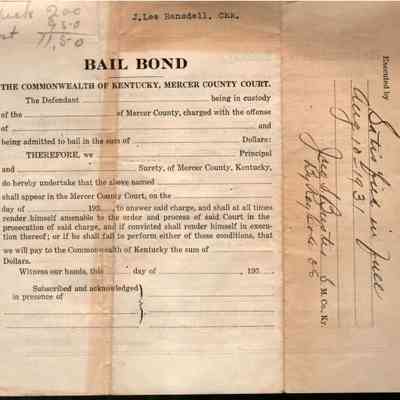 200
J. Lee Ransdell, Clk.
11.50
BAIL BOND
THE COMMONWEALTH OF KENTUCKY, MERCER COUNTY COURT.
The Defendant being in custody
of the of Mercer County, charged with the offense
of and
being admitted to bail in the sum of Dollars:
THEREFORE, we Principal
and Surety, of Mercer County, Kentucky,
do hereby undertake that the above named
shall appear in the Mercer County Court, on the
day of 193 , to answer said charge, and shall at all times
render himself amenable to the order and process of said Court in the
prosecution of said charge, and if convicted shall render himself in execu-
tion thereof; or if he shall fail to perform either of these conditions, that
we will pay to the Commonwealth of Kentucky the sum of
Dollars.
Witness our hands, this day of , 193
Subscribed and acknowledged
in presence of
Executed by
Satisfied in full
Aug 193
S. M. Co. Ky.
By